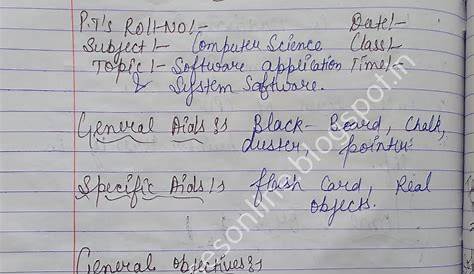 P.T's Roll-No!- Date!-
Subject!- Computer Science Class!-
Topic!- Software application Time!-
& System Software.
General Aids:s Black-Board, Chalk,
duster, pointer
Specific Aids!s flash Card, Real
objects.
General objectives:s
esonline.blogspot.in